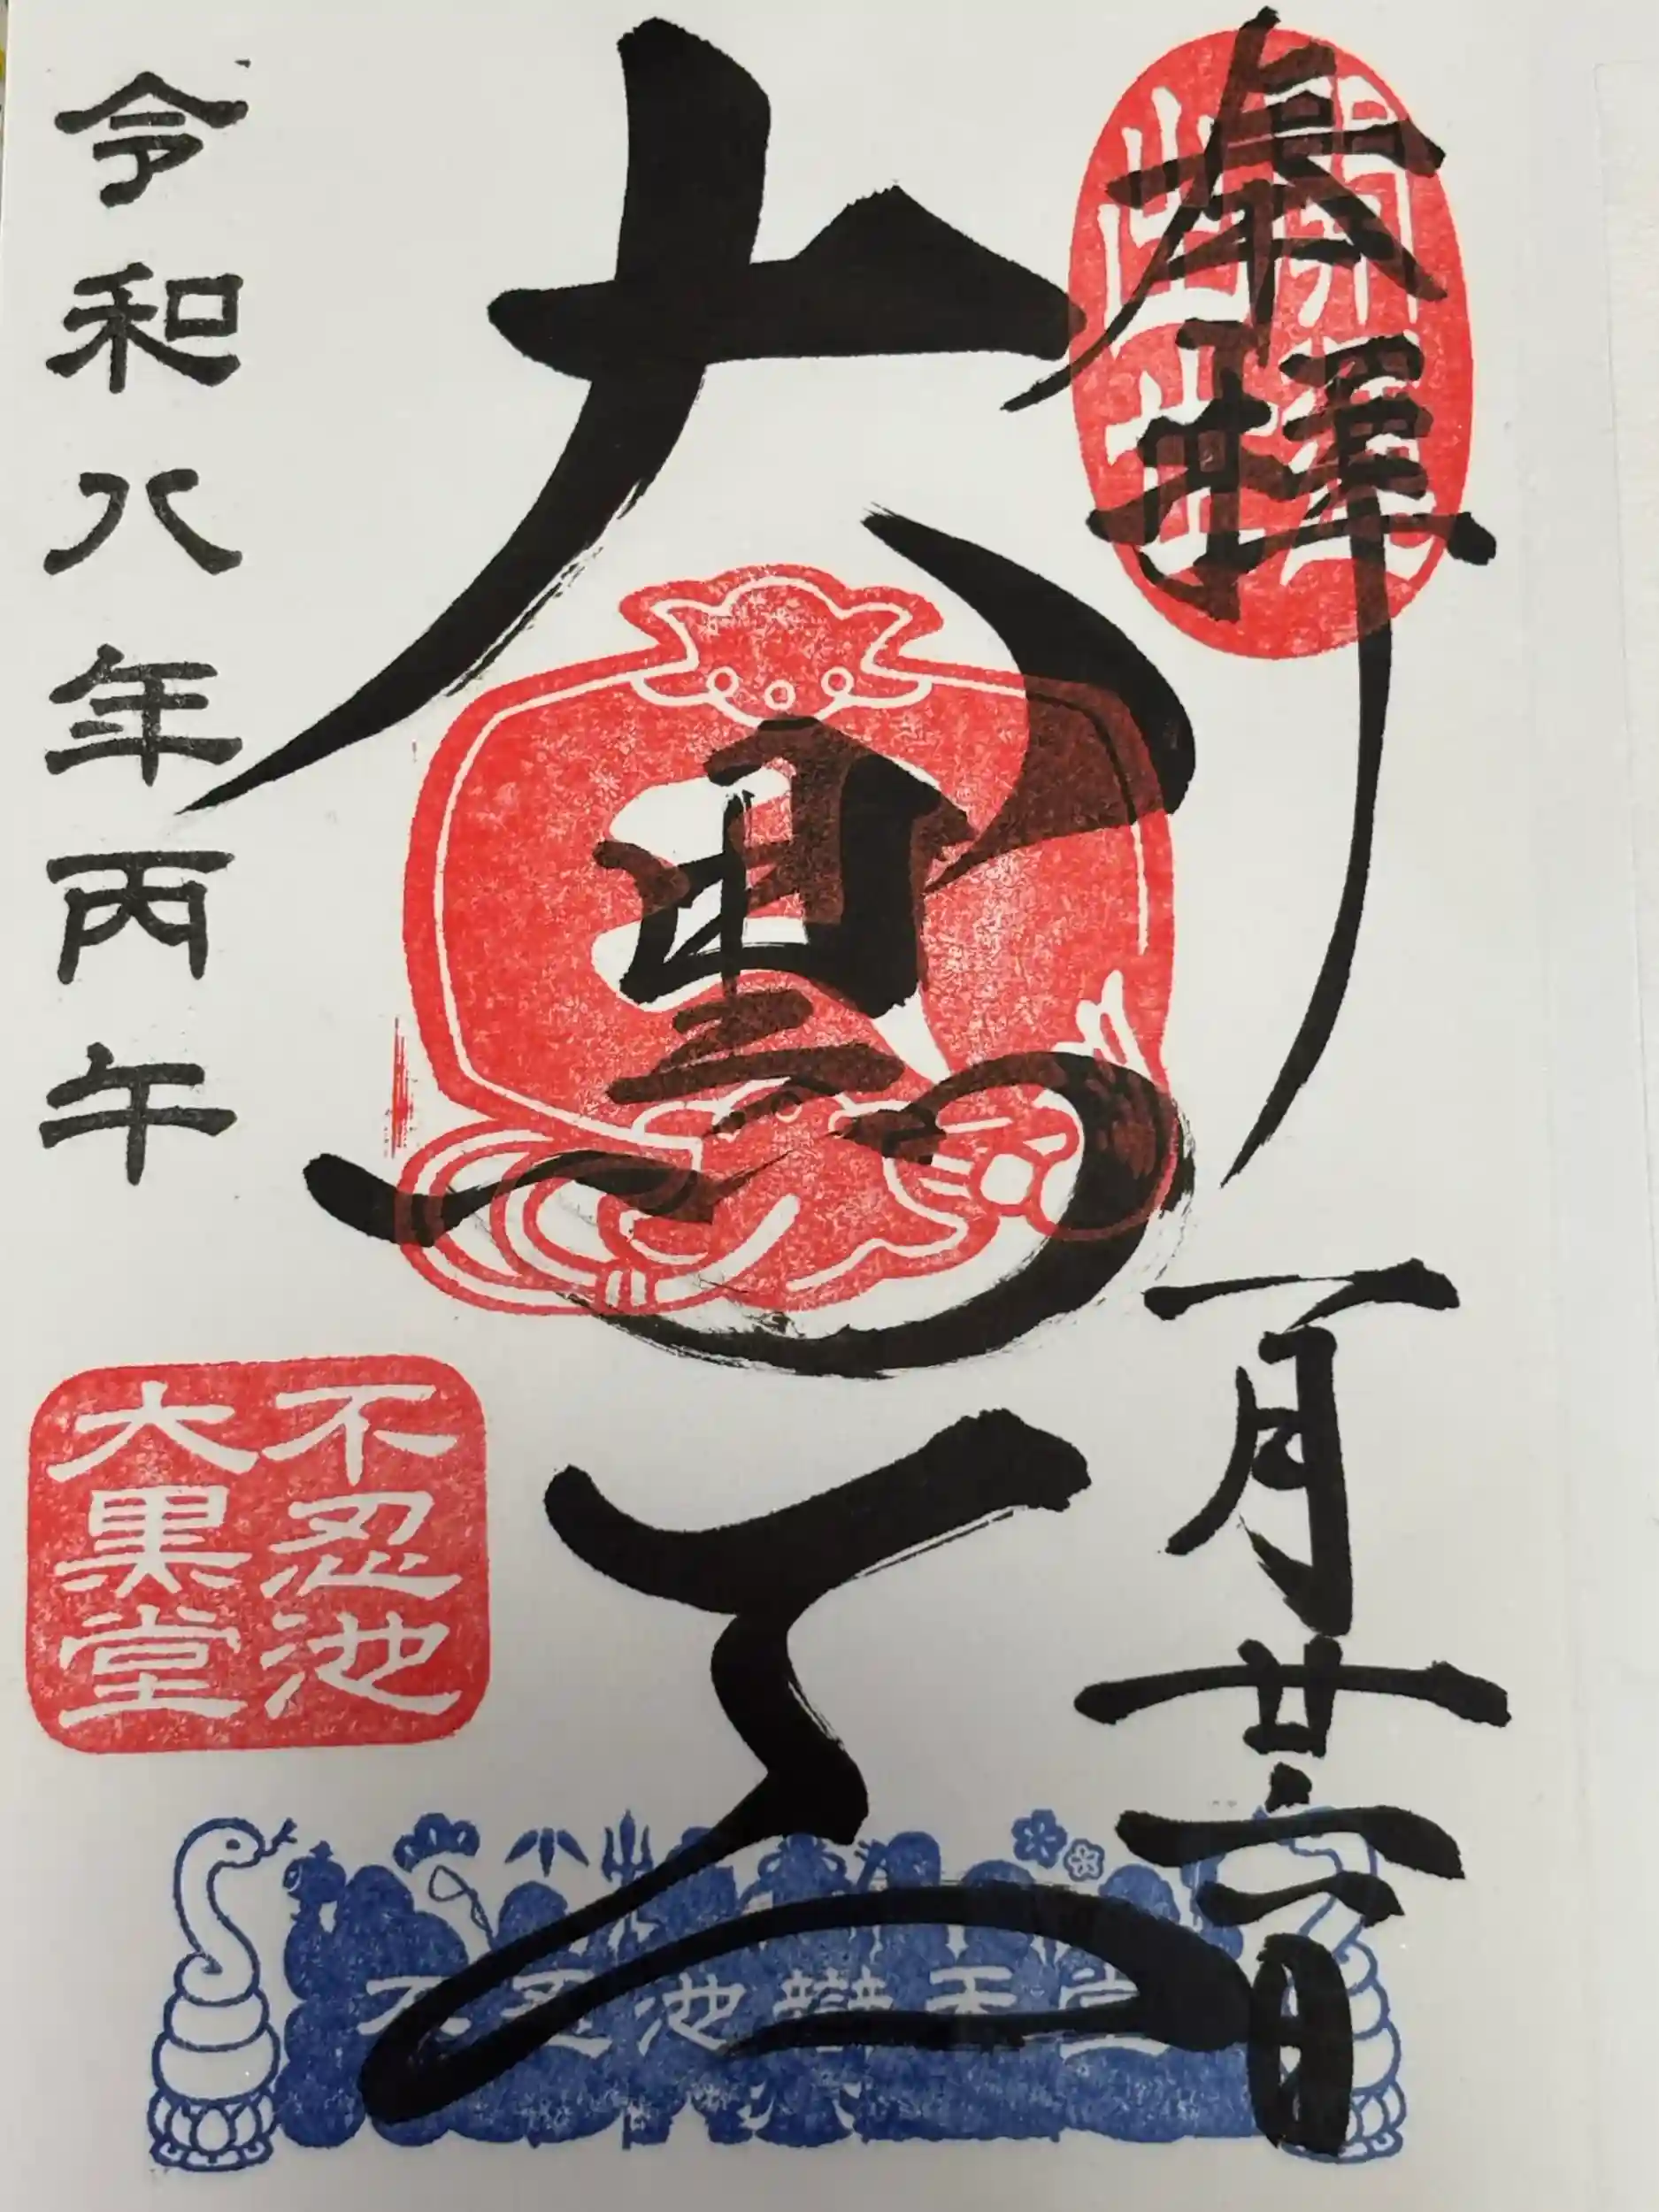 奉拝
開運
出世
一月廿六日
大黒天
令和八年丙午
不忍池
大黒堂
不忍池辯天堂